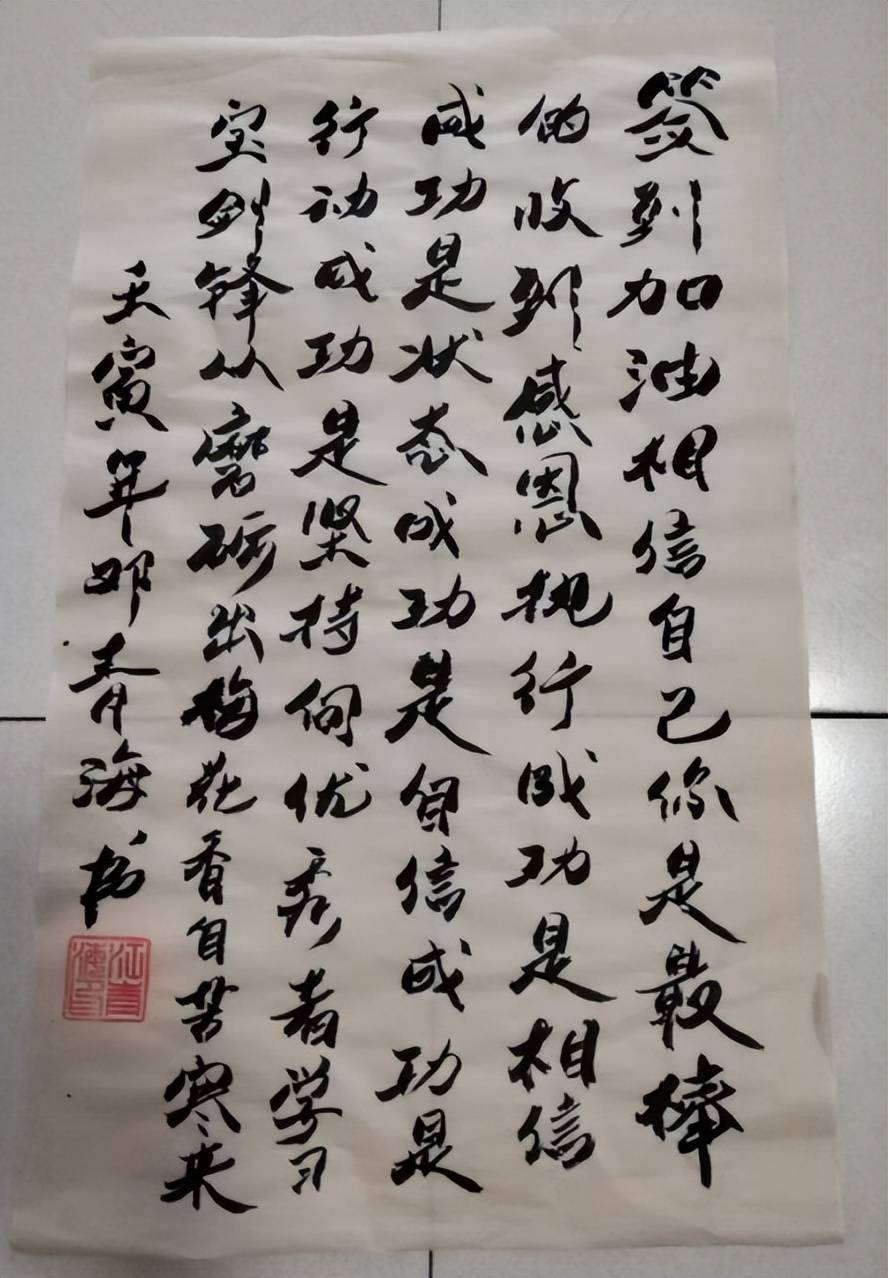 签到加油相信自己你是最棒
的收到感恩执行成功是相信
成功是状态成功是自信成功是
行动成功是坚持向优秀者学习
宝剑锋从磨砺出梅花香自苦寒来
壬寅年邓青海书